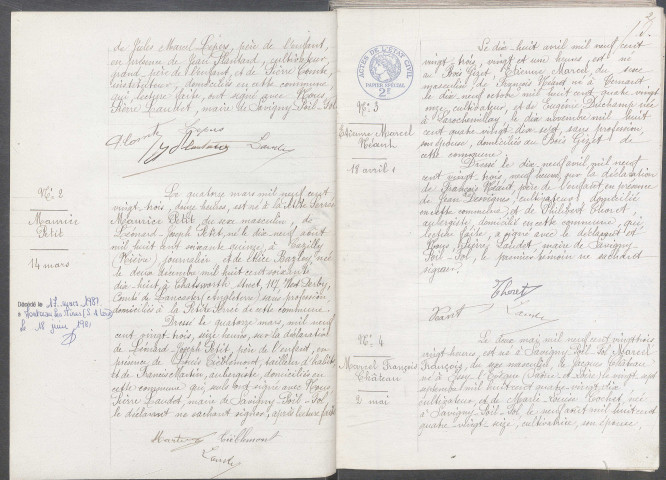 de Jules Marcel Lépos, père de l'enfant,
en présence de Jean Plantard, cultivateur,
grand-père de l'enfant, et de Pierre Comte,
instituteur, domiciliés en cette commune
qui, lecture faite, ont signé avec Nous
Pierre Laudet, maire de Savigny-Poil-Fol
N: 2
Maurice
Petit
14 mars
Décédé le 17 mars 1981
le 18 juin 1981
Le quatorze mars mil neuf cent
vingt-trois, deux heures, est né à la
Maurice Petit, de sexe masculin, de
Léonard Joseph Petit, né le dix-neuf août
mil huit cent soixante seize, à Bazilly
journalier, et de Alice Bazley, née
le deux décembre mil huit cent soixante
dix-huit à Chatsworth Street, 117, West Derby,
Comté de Lancaster (Angleterre) sans profession,
domiciliés à la de cette commune.
Dressé le quatorze mars, mil neuf
cent vingt-trois, seize heures, sur la déclaration
de Léonard Joseph Petit, père de l'enfant, en
présence de tailleur d'habits
et de Francis Martin, aubergiste, domiciliés en
cette commune qui, ont signé avec Nous
Pierre Laudet, maire de Savigny-Poil-Fol,
le déclarant ne sachant signer, après lecture faite
ACTES DE L'ETAT CIVIL
PAPIER SPECIAL
2F
N: 3
Etienne Marcel
Réant
18 avril
Le dix-huit avril mil neuf cent
vingt-trois, vingt et une heures, est né
au Bois Gizet, Etienne Marcel, de sexe
masculin, de François Réant, né à Ternant
le dix-neuf mil huit cent quatre-vingt
onze, cultivateur, et de Eugénie Duchamp, née
à Larochemillay, le dix novembre mil huit
cent quatre-vingt-dix-sept, sans profession,
son épouse, domiciliés au Bois Gizet de
cette commune.
Dressé le dix-neuf avril mil neuf
cent vingt-trois, neuf heures, sur la déclaration
de François Réant, père de l'enfant, en présence
de Jean cultivateur, domicilié
en cette commune, et de Philibert Thoret
aubergiste, domicilié en cette commune, qui,
lecture faite, a signé avec le déclarant et
Nous, Pierre Laudet, maire de Savigny-
Poil-Fol, le premier témoin ne sachant
signer.
Thoret
Réant
N: 4
Marcel François
Château
2 mai
Le deux mai, mil neuf cent vingt-trois
vingt heures, est né à Savigny-Poil-Fol, Marcel
François, de sexe masculin, de Château
né à (Saône et Loire) le vingt-sept
septembre mil huit cent quatre-vingt-dix
cultivateur, et de Marie Louise Cochet, née
à Savigny-Poil-Fol, le neuf août mil huit cent
quatre-vingt-seize, cultivatrice, son épouse,